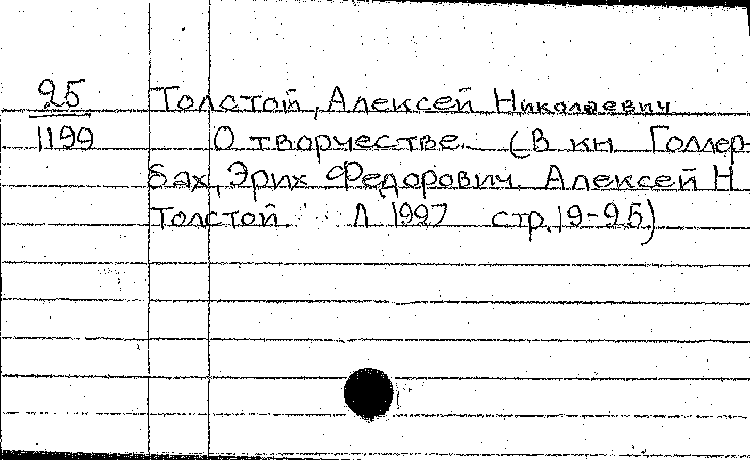 25 Толстой, Алексей Николаевич
1199 О творчестве. (В кн. Голлер-
бах, Эрих Федорович. Алексей Н.
Толстой. Л. 1997 стр. 19-25)